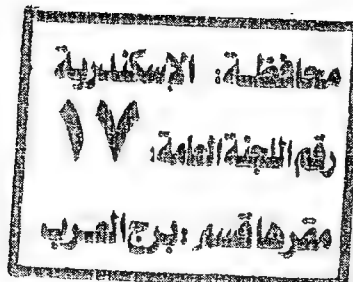 محافظة: الإسكندرية
رقم اللجنة العامة: ١٧
مقرها قسم: برج العرب